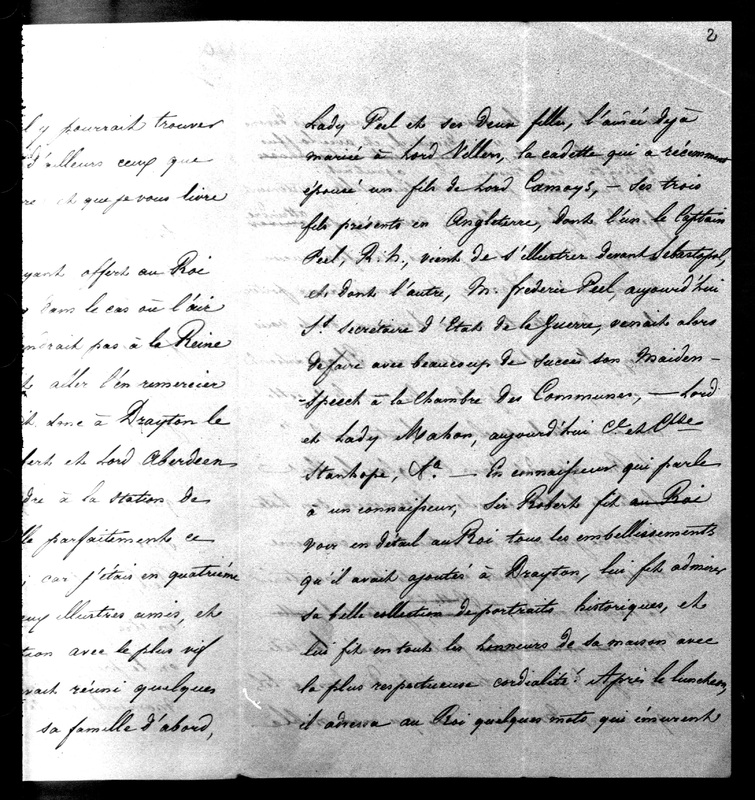 2
l y pourrait trouver
d'ailleurs ceux que
et que je vous livre
yant offert au Roi
dans le cas où l'air
nerait pas à la Reine
aller l'en remercier
donc à Drayton le
bert et Lord Aberdeen
dre à la station de
lle parfaitement ce
; car j'étais en quatrième
eux illustres amis, et
tion avec le plus vif
vait réuni quelques
sa famille d'abord,
Lady Peel et ses deux filles, l'aînée déjà
mariée à Lord Villiers, la cadette qui a récemment
épousé un fils de Lord Camoys, – Ses trois
fils présents en Angleterre, dont l'un le Captain
Peel, R. N., vient de s'illustrer devant Sebastopol,
et dont l'autre, M. Frederic Peel, aujourd'hui
St secrétaire d'Etat de la Guerre, venait alors
de faire avec beaucoup de succès son Maiden-
-Speech à la Chambre des Communes, – Lord
et Lady Mahon, aujourd'hui Ct et Ctsse
Stanhope, &a. – En connaisseur qui parle
à un connaisseur, Sir Robert fit au Roi
voir en détail au Roi tous les embellissements
qu'il avait ajoutés à Drayton, lui fit admirer
sa belle collection de portraits historiques, et
lui fit en tout les honneurs de sa maison avec
la plus respectueuse cordialité. Après le luncheon,
il adressa au Roi quelques mots qui émurent